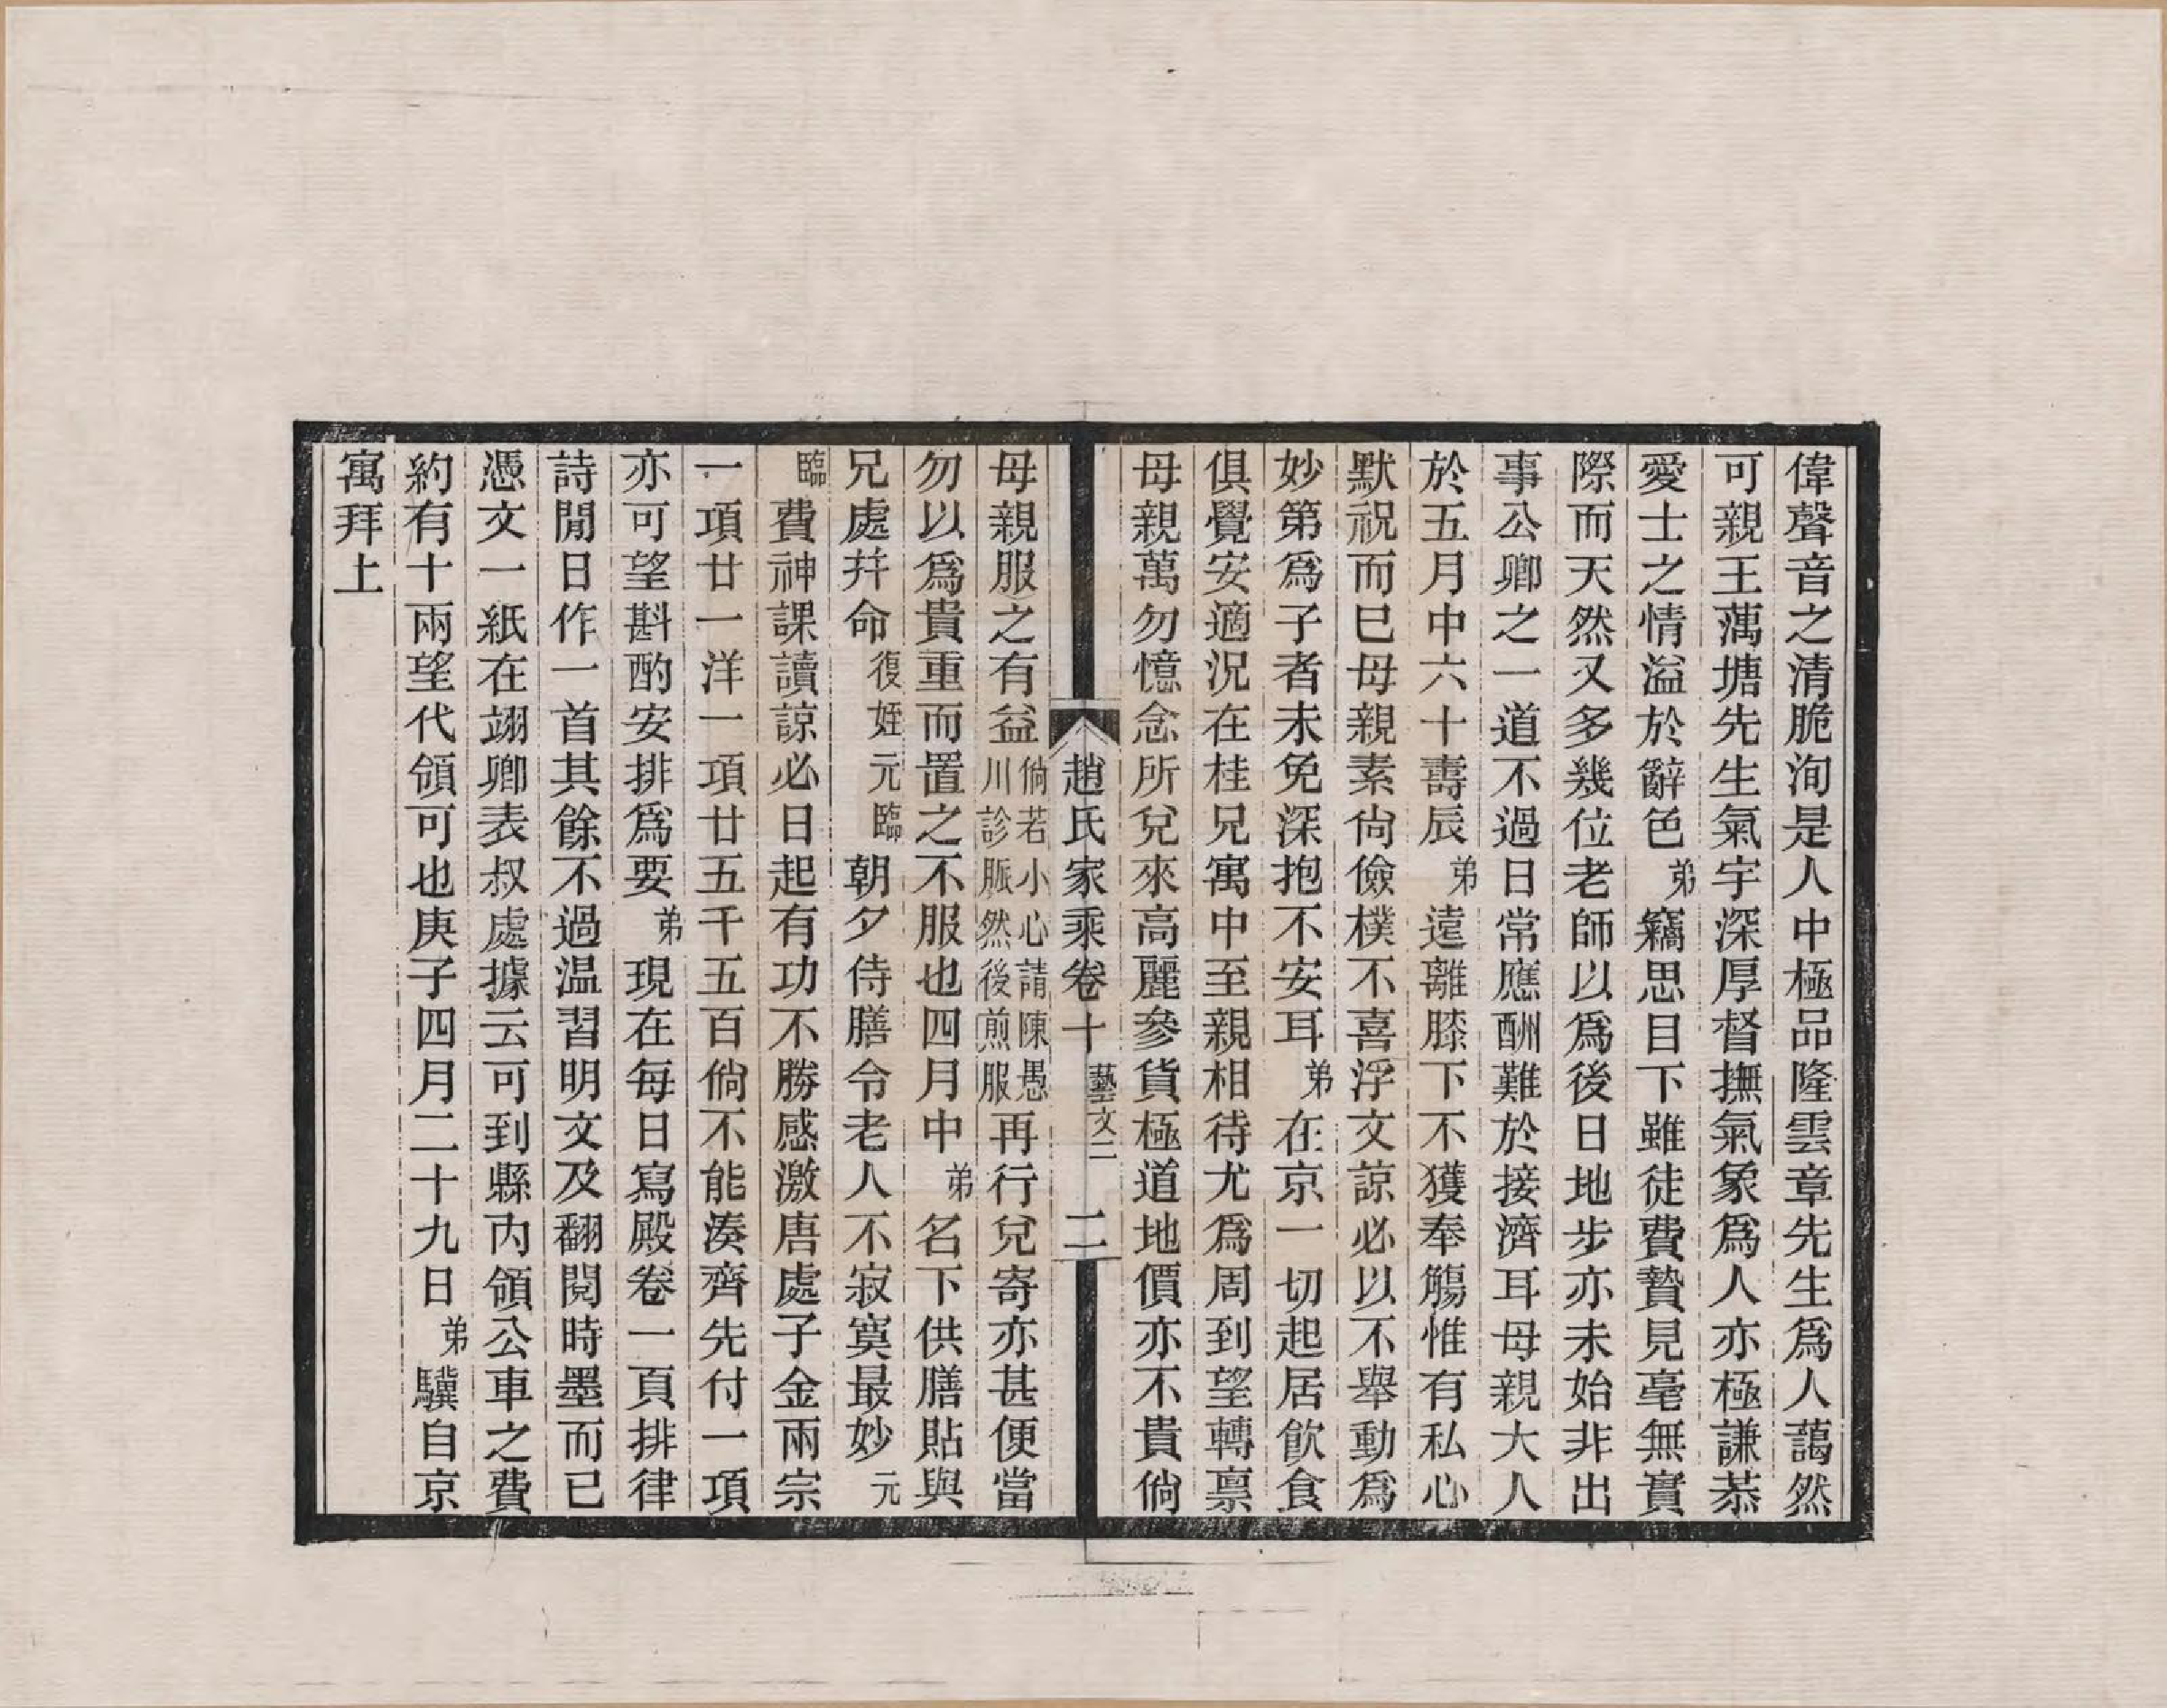 偉聲音之清脆洵是人中極品隆雲章先生爲人藹然
可親王藕塘先生氣宇深厚督撫氣象爲人亦極謙恭
愛士之情溢於辭色弟竊思目下雖徒費贄見毫無實
際而天然又多幾位老師以爲後日地步亦未始非出
事公卿之一道不過日常應酬難於接濟耳母親大人
於五月中六十壽辰弟遠離膝下不獲奉觴惟有私心
默祝而巳母親素尙儉樸不喜浮文諒必以不舉動爲
妙第爲子者未免深抱不安耳弟在京一切起居飮食
俱覺安適況在桂兄寓中至親相待尤爲周到望轉禀
母親萬勿憶念所兌來高麗參貨極道地價亦不貴倘
趙氏家乘卷十 藝文二 二
母親服之有益倘若小心請陳愚川診脈然後煎服再行兌寄亦甚便當
勿以爲貴重而置之不服也四月中弟名下供膳貼與
兄處幷命復姪元臨朝夕侍膳令老人不寂寞最妙元
臨費神課讀諒必日起有功不勝感激唐處子金兩宗
一項廿一洋一項廿五千五百倘不能湊齊先付一項
亦可望斟酌安排爲要弟現在每日寫殿卷一頁排律
詩閒日作一首其餘不過温習明文及翻閱時墨而已
憑文一紙在翊卿表叔處據云可到縣內領公車之費
約有十兩望代領可也庚子四月二十九日弟驥自京
寓拜上